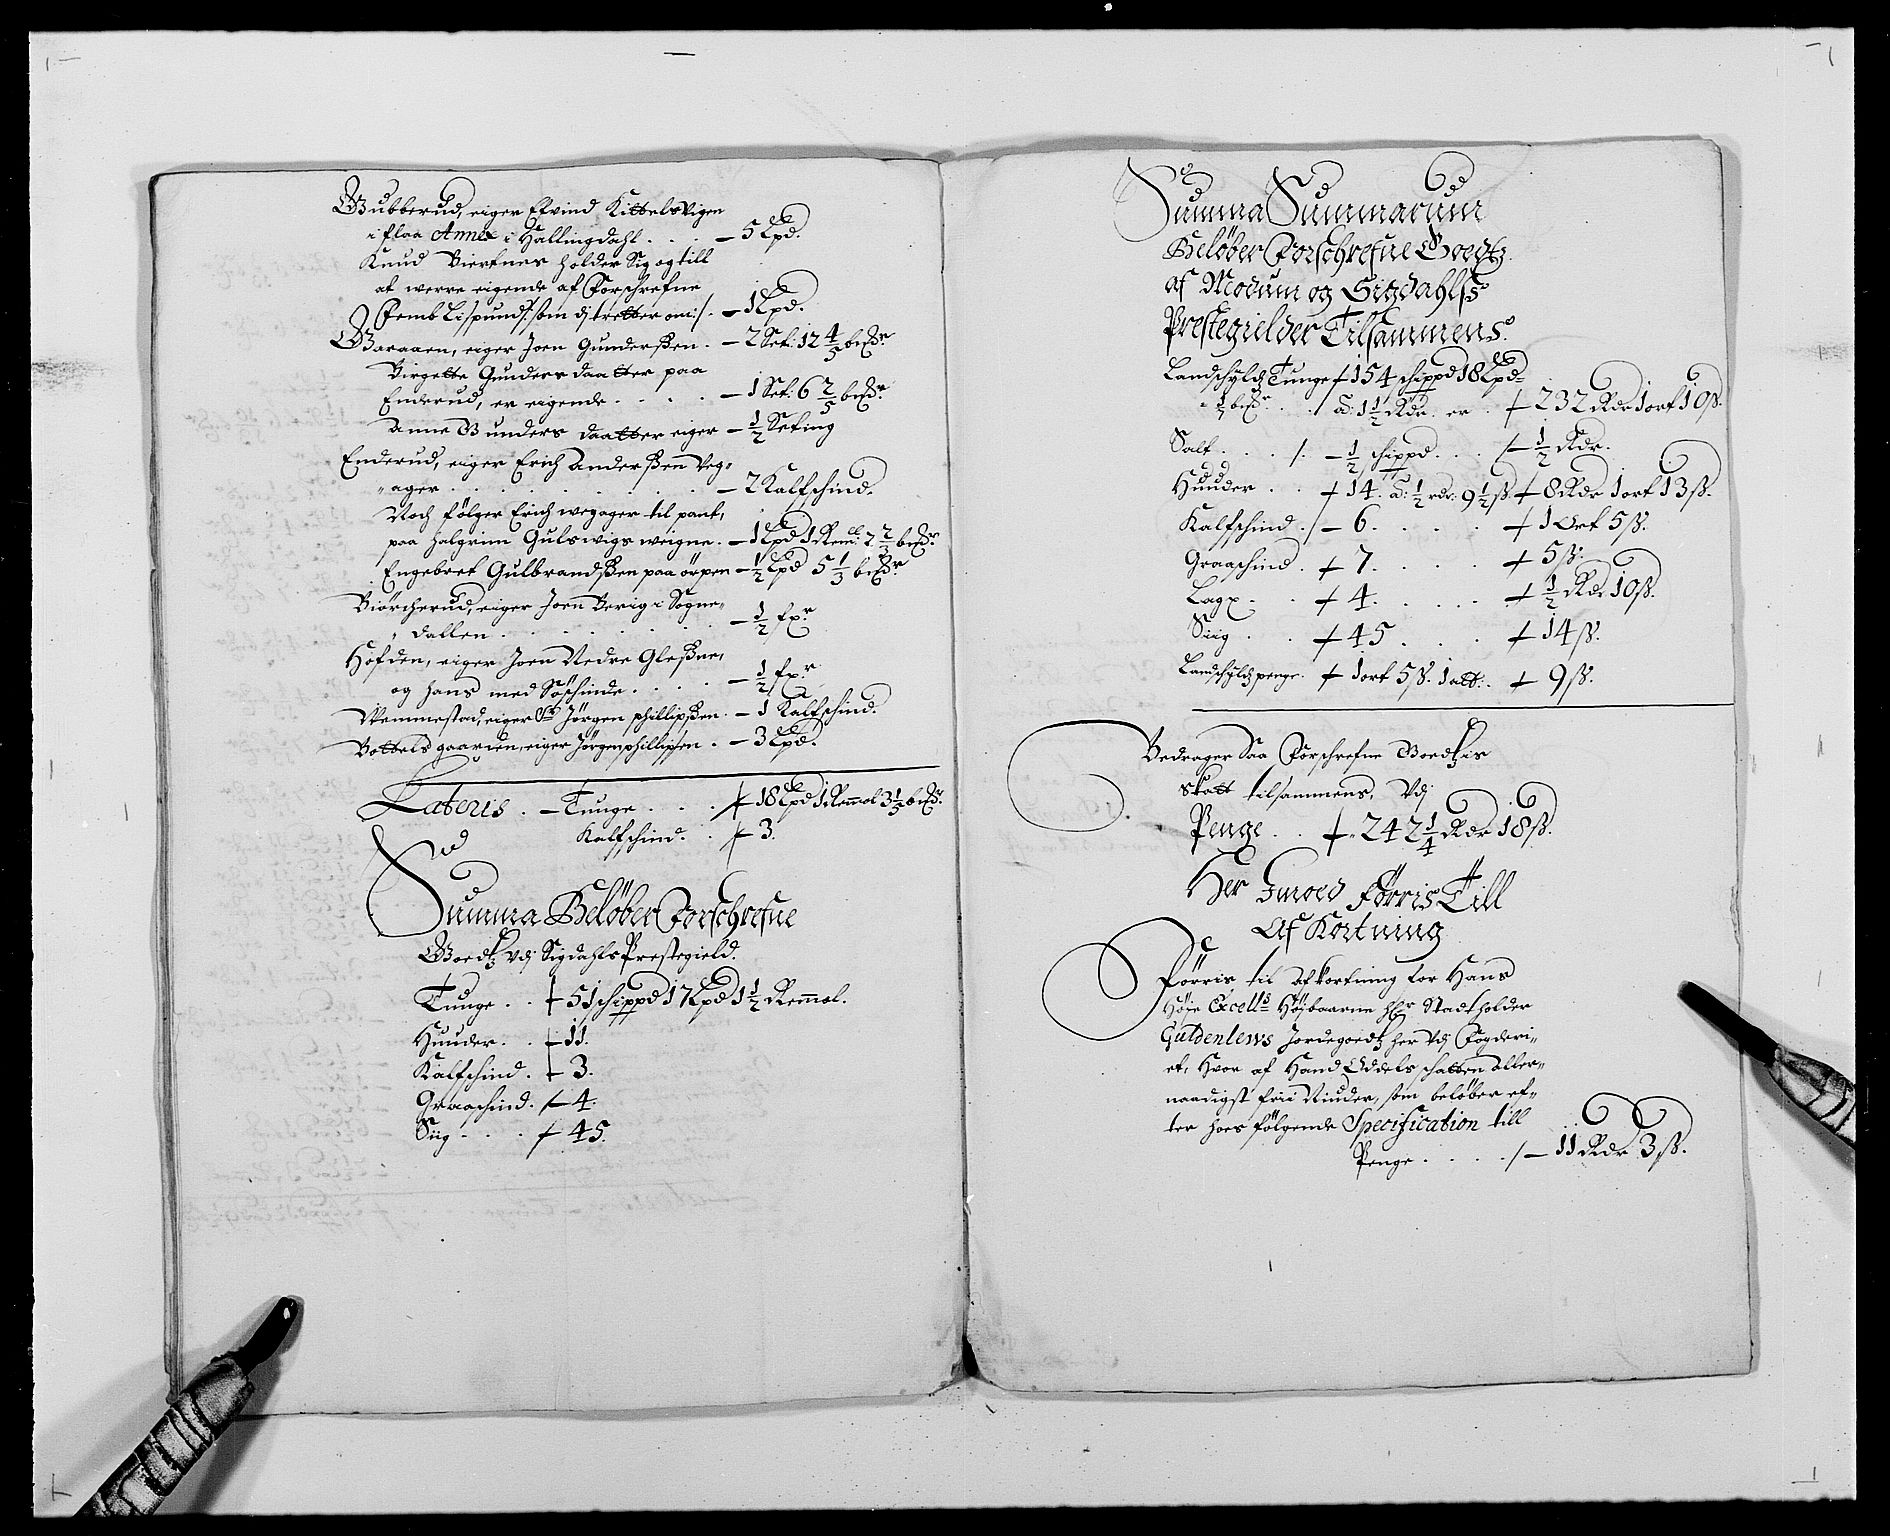 Gubberud, eiger Eivind Kittelsvigen
i flaa Annex i Hallingdahl . . . – 5 Lpd.
Knud Bierknes holder Sig og till
at werre eigende af Forschrefne
Femb Lispund: som di tretter om :/. – 1 Lpd.
Garaaen, eiger Joen Gunderßen . – 2 Set: 12 4/5 bißr
Birgette Gunders daatter paa
Enderud, er eigende . . . . – 1 Set: 6 2/5 bißr
Anne Gunders daatter eiger – 1/2 Seting
Enderud, eiger Erich Anderßen Veg„
„ager . . . . . . . – 2 Kalfschind.
Noch følger Erich wegager til pant,
paa Halgrim Gulswigs weigne . – 1 Lpd 1 Rem: 2 2/3 bißr
Engebret Gulbrandßen paa ørpen – 1/2 Lpd 5 1/3 bißr
Biørcherud, eiger Joen Berig i Sogne„
„dallen . . . . . . – 1/2 fxr
Hofden, eiger Joen Nedre Gleßne,
og hans med Søschinde . . . . – 1/2 fxr
Wemmestad, eiger Sr Jørgen Phillipßen . – 1 Kalfschind.
Bottelsgaarden, eiger Jørgen phillipßen . – 3 Lpd.
Lateris . – Tunge . . . . 18 Lpd 1 Remmol 3 1/3 bißr.
Kalfschind . . 3.
Summa Beløber Forschrefne
Goedtz Vdj Sigdahls Prestegield.
Tunge . . 51 schippd 17 Lpd 1 1/2 Remmol.
Huuder . . – 11.
Kalfschind . – 3.
Graaschind . – 4.
Siig . . . . 45.
Summa Summarum
Beløber Forschrefne Goedtz
af Modum og Sigdahlß
Prestegielder Tilsammens
Landschyld Tunge 154 schippd 18 Lpd
1/2 bißr . . . ad: 1 1/2 Rdr. er . 232 Rdr 1 ort 10 ß.
Salt . . . /. – 1/2 schippd . . . /– 1/2 Rdr.
Huuder . . 14. ad: 1/2 rdr: 9 1/2 ß 8 Rdr 1 ort 13 ß.
Kalfschind . /– 6 . . . . 1 Ort 5 ß.
Graaschind . 7 . . . . . 5 ß.
Lax . . . 4 . . . . . 1/2 Rdr 10 ß.
Siig . . . 45 . . . . 14 ß.
Landschyldz penge . 1 ort 5 ß. 1 alb: . 9 ß.
Bedrager Saa Forschrefne Goedtzis
skatt tilsammens, Vdj
Penge . . . 242 1/4 Rdr 18 ß.
Her Imoed Førris Till
Af Kortning
Førris til afkortning for Hans
Høje Excells Højbaarne Hr Stadtholder
Guldenlews Jordegoedtz her Vdj Fogderi„
et, Hvor af Hand Oddels schatten Aller„
naadigst frii Niuder, som beløber ef„
ter hoes følgende Specification till
Penge . . . . /– 11 Rdr 3 ß.